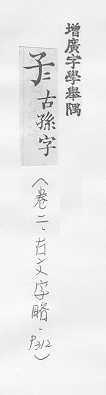 增廣字學舉隅
子= 古孫字
(卷二、古文字略、P312)